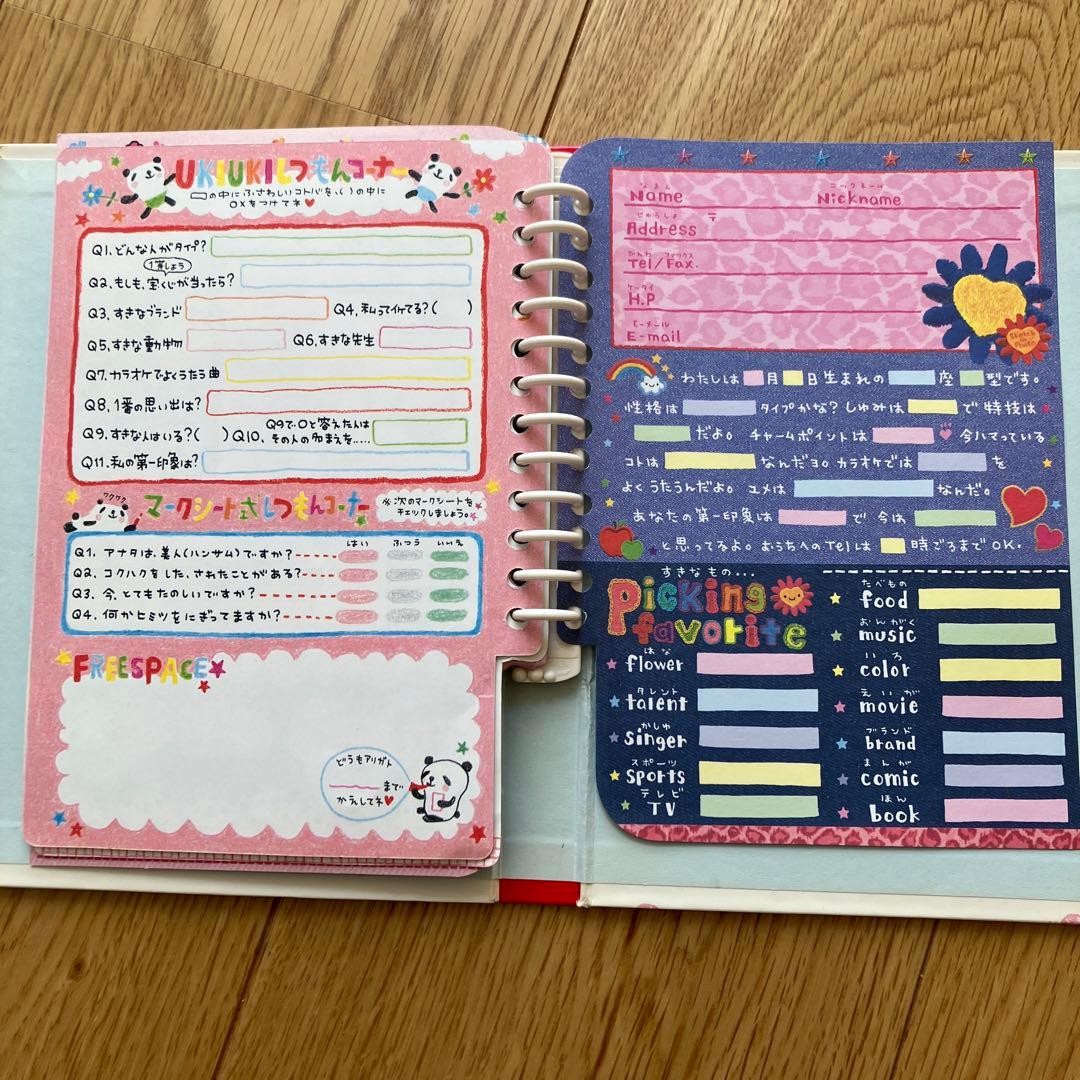 UKIUKIしつもんコーナー
□の中にふさわしいコトバを、( )の中に
OXをつけてネ♥
Q1.どんな人がタイプ?
1等しょう
Q2.もしも、宝くじが当ったら?
Q3.すきなブランド
Q4.私ってイケてる?( )
Q5.すきな動物
Q6.すきな先生
Q7.カラオケでよくうたう曲
Q8.1番の思い出は?
Q9.すきな人はいる?( )
Q10.
Q9で○と答えた人は
その人の名まえを.....
Q11.私の第一印象は?
ワクワク
マークシート式しつもんコーナー
※次のマークシートを
チェックしましょう。
はい ふつう いいえ
Q1.アナタは、美人(ハンサム)ですか?
Q2.コクハクをした、されたことがある?
Q3.今、とてもたのしいですか?
Q4.何かヒミツをにぎってますか?
FREESPACE
どうもアリガト
まで
かえしてネ♥
なまえ ニックネーム
Name Nickname
じゅうしょ 〒
Address
でんわ ファックス
Tel/Fax.
ケータイ
H.P
E-メール
E-mail
わたしは 月 日生まれの 座 型です。
性格は タイプかな? しゅみは で 特技は
だよ。 チャームポイントは 今ハマっている
コトは なんだヨ。カラオケでは を
よくうたうんだよ。 ユメは なんだ。
あなたの第一印象は で 今は
と思ってるよ。おうちへのTelは 時ごろまでOK.
すきなもの...
Picking
favorite
はな
flower
タレント
talent
かしゅ
singer
スポーツ
sports
テレビ
TV
たべもの
food
おんがく
music
いろ
color
えいが
movie
ブランド
brand
まんが
comic
ほん
book